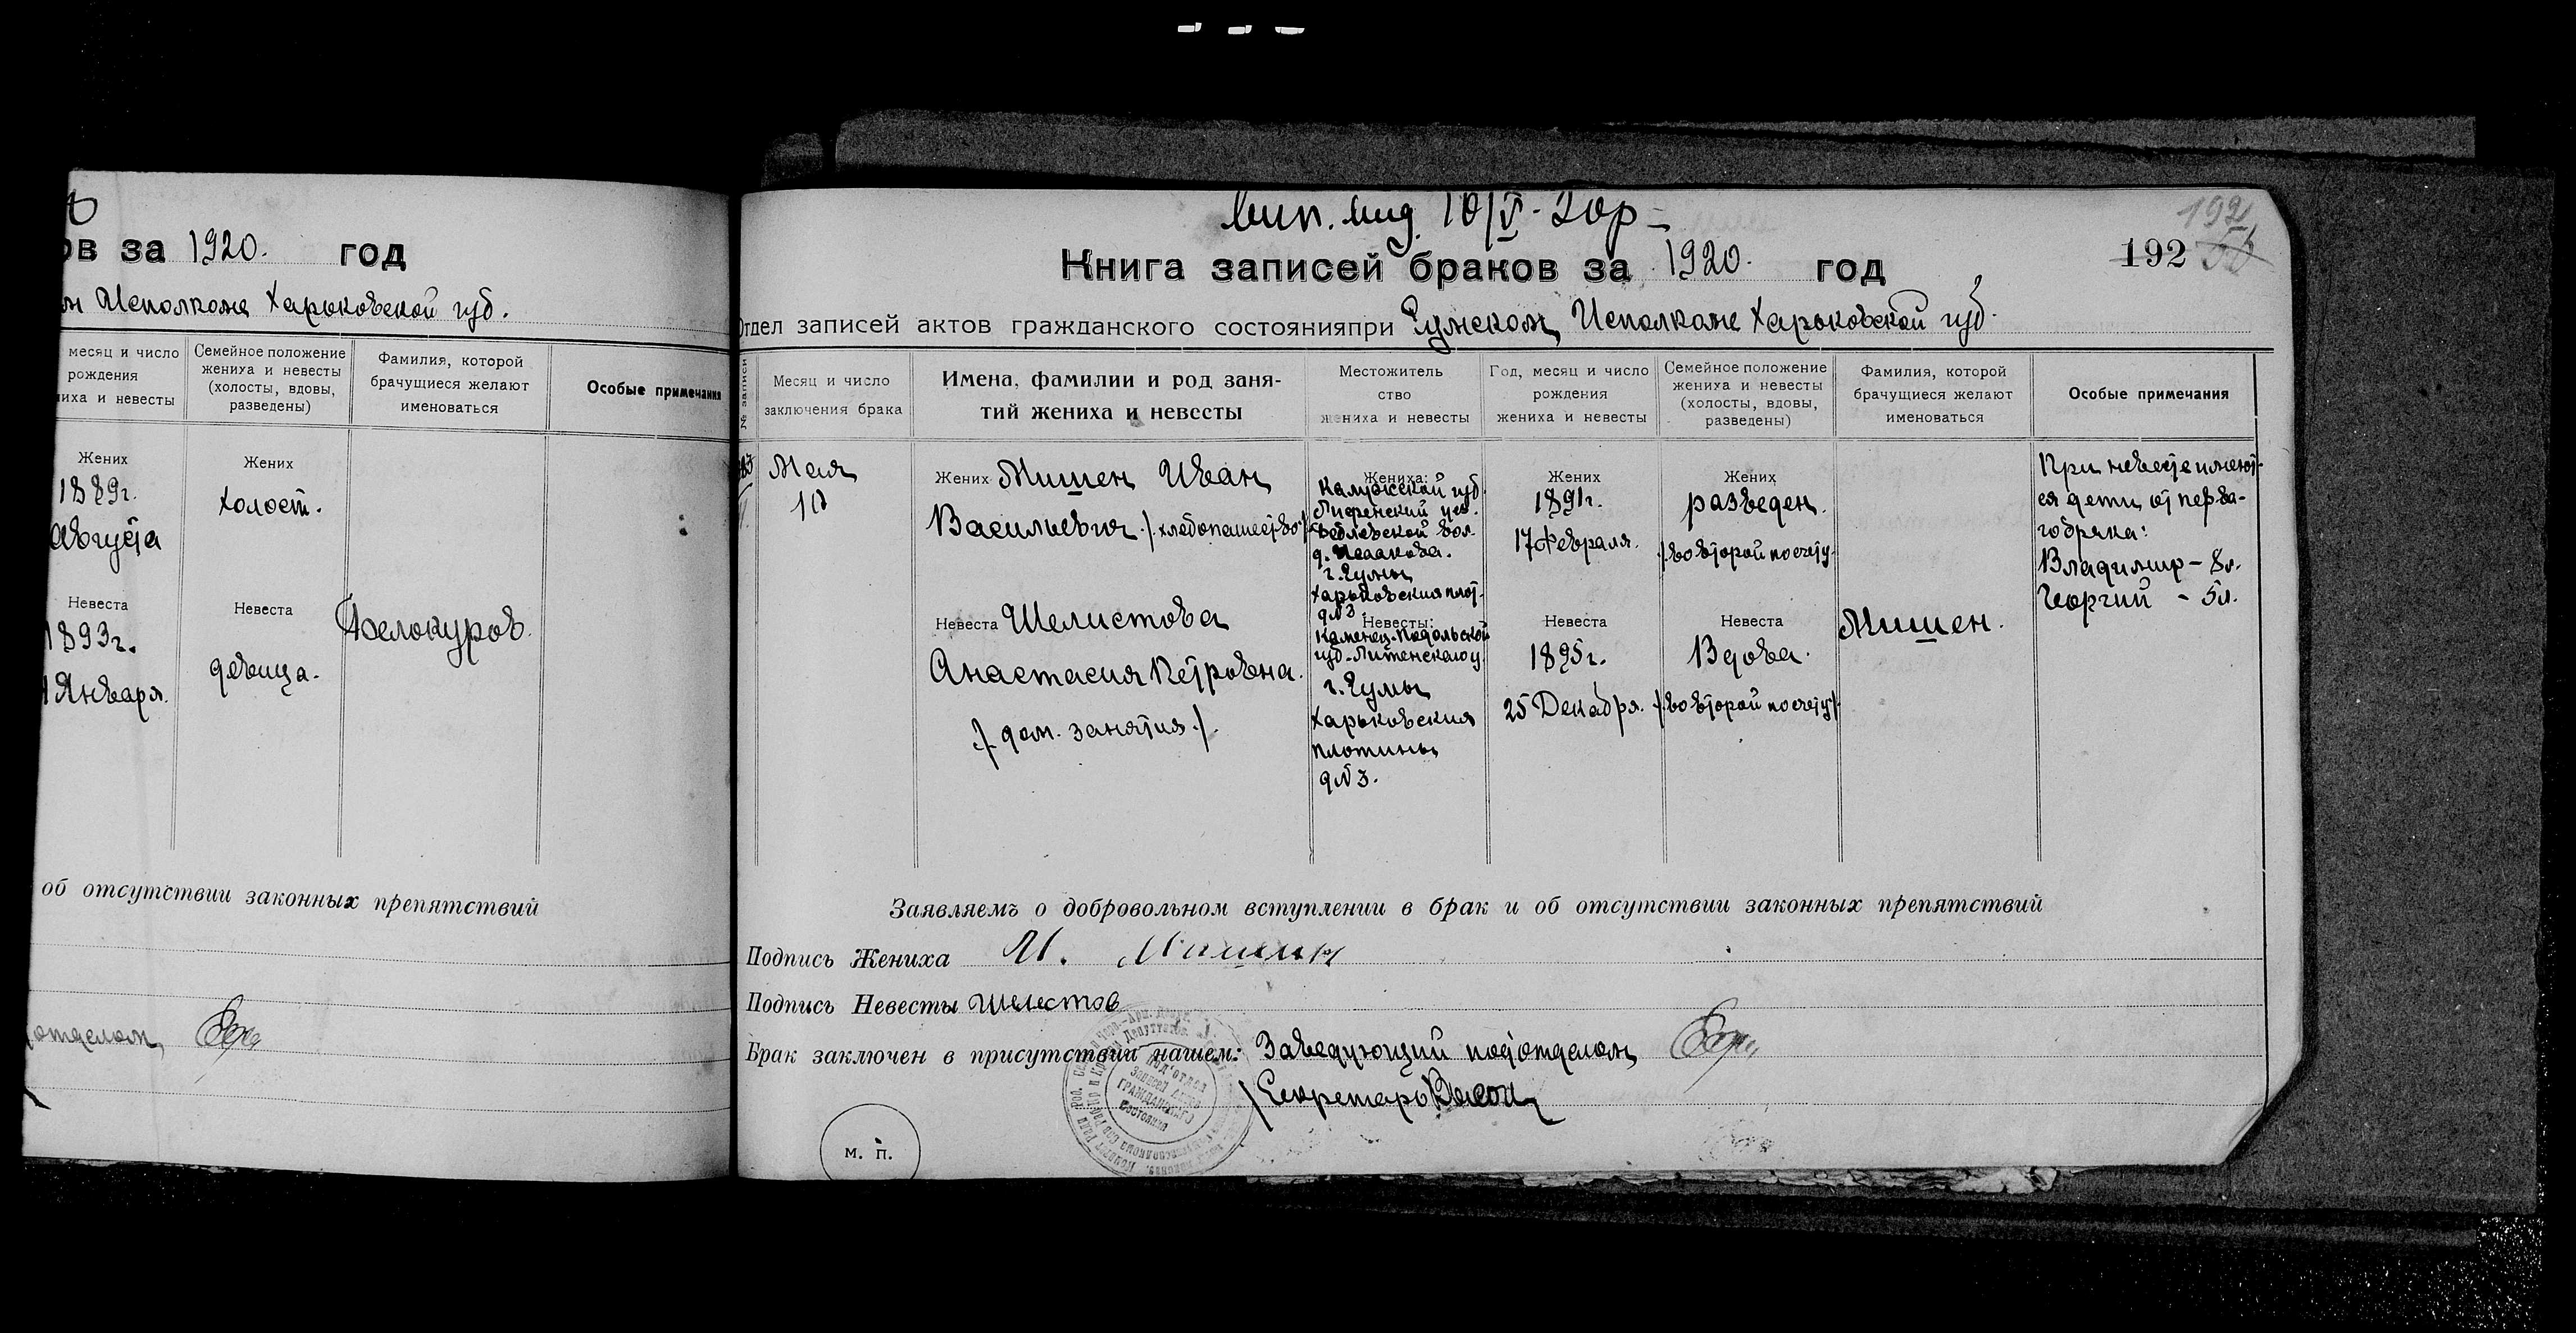 ов за 1920. год
Исполкоме Харьковской губ.
месяц и число
рождения
ниха и невесты
Семейное положение
жениха и невесты
(холосты, вдовы,
разведены)
Фамилия, которой
брачущиеся желают
именоваться
Особые примечания
Жених
1889г.
Августа
Жених
холост.
Невеста
1893г.
1 Января.
Невеста
девица.
Белокуров.
об отсутствии законных препятствий
отделом
10/V-20р
Книга записей браков за 1920. год
192
192
Отдел записей актов гражданского состояния при Сумском Исполкоме Харьковской губ.
№ записи
Месяц и число
заключения брака
Имена, фамилии и род заня-
тий жениха и невесты
Местожитель
ство
жениха и невесты
Год, месяц и число
рождения
жениха и невесты
Семейное положение
жениха и невесты
(холосты, вдовы,
разведены)
Фамилия, которой
брачущиеся желают
именоваться
Особые примечания
Мая
10
Жених Мишен Иван
Васильевич /хлебопашество/
Невеста Шелистова
Анастасия Петровна.
/дом. занятия/.
Жениха:
Калужской губ.
уез.
вол.
д. Исакова.
г. Сумы
Харьковския плот.
д№3
Невесты:
Каменец-Подольской
губ. Литенского у.
г. Сумы
Харьковския
плотины
д№3.
Жених
1891г.
17 Февраля.
Невеста
1895г.
25 Декабря.
Жених
разведен.
/во второй по счету/
Невеста
Вдова.
/во второй по счету/
Мишен.
При невесте имеют-
ся дети от перва-
го брака:
Владимир - 8л.
Георгий - 5л.
Заявляемъ о добровольном вступлении в брак и об отсутствии законных препятствий
Подпись Жениха И. Мишин
Подпись Невесты Шелестов
Брак заключен в присутствии нашем: Заведующий подотделом
Секретарь
Под'отдел
Записей Актов
Гражданского
Состояния
м. п.